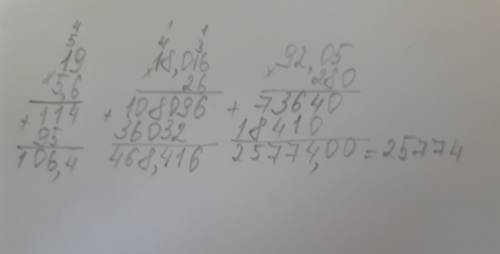 4 1 1
5 4 3
19 18,016 92,05
× 56 × 26 × 280
+ 114 + 108096 + 73640
95 36032 18410
106,4 468,416 25774,00 = 25774